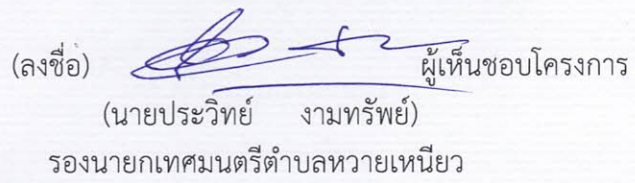 (ลงชื่อ) ผู้เห็นชอบโครงการ
(นายประวิทย์ งามทรัพย์)
รองนายกเทศมนตรีตำบลหวายเหนียว